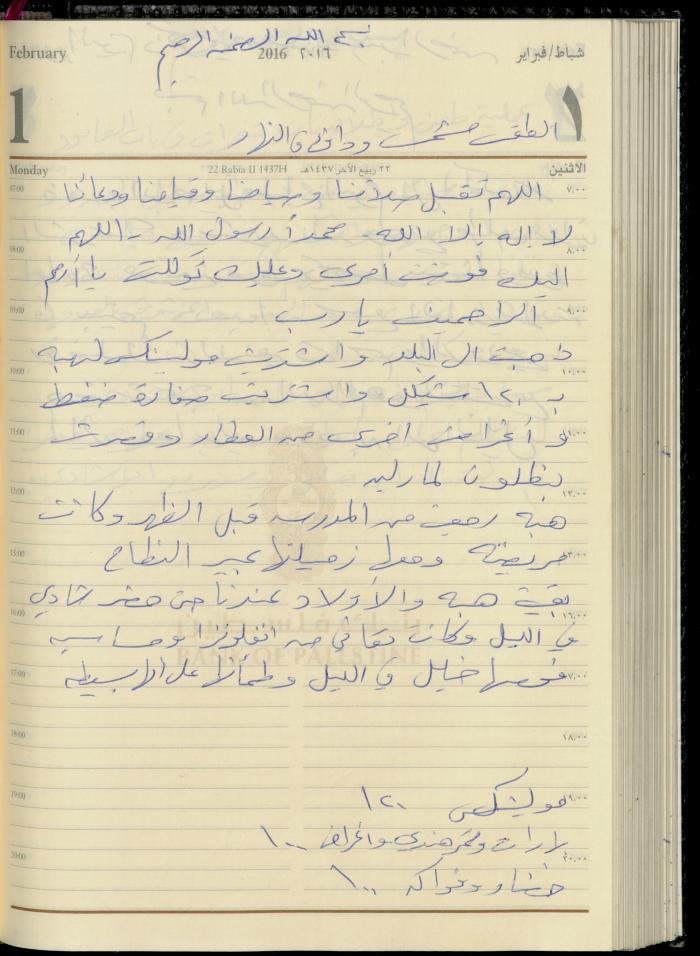 بسم الله الرحمن الرحيم
February 2016 ٢٠١٦ شباط/فبراير
1 ١
الطقس مشمس ودافئ في النهار
Monday 22 Rabia II 1437H ٢٢ ربيع الآخر ١٤٣٧هـ الاثنين
07:00 اللهم تقبل صلاتنا وصيامنا وقيامنا ودعائنا ٧,٠٠
لا إله إلا الله محمداً رسول الله اللهم
08:00 ٨,٠٠
اليك فوضت أمري وعليك توكلت يا أرحم
09:00 الراحمين يا رب
ذهبت الى البلد واشتريت مولينكس لهبه
10:00 ١٠,٠٠
بـ ١٢٠ شيكل واشتريت صفارة ضغط
11:00 و أغراض اخرى من العطار وقصرت ١١,٠٠
بنطلون
12:00 ١٢,٠٠
هبه رجعت من المدرسه قبل الظهر وكانت
13:00 مريضة ومعها زميلتها عبير
بقيت هبه والأولاد عندنا حتى حضر شادي
16:00 ١٦,٠٠
في الليل وكانت تعاني من انفلونزا وحساسيه
بنك فلسطين
BANK OF PALESTINE
17:00 فحصها خليل في الليل وطمأنها على انها بسيطه ١٧,٠٠
18:00 ١٨,٠٠
19:00 مولينكس ١٢٠
وتمر هندي واغراض ١٠٠
20:00 ٢٠,٠٠
خضار وفواكه ١٠٠